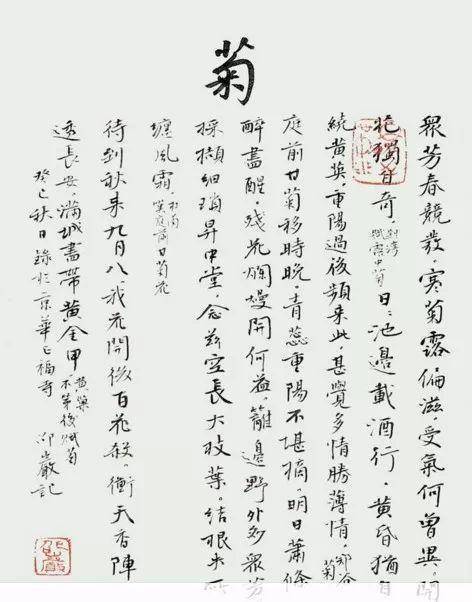 菊
眾芳春競發，寒菊露偏滋，受氣何曾異，開
花獨自奇，劉灣賦露中菊 日:池邊載酒行，黃昏猶自
繞黃英，重陽過後頻來此，甚覺多情勝薄情，鄭谷菊
庭前甘菊移時晚，青蕊重陽不堪摘，明日蕭條
醉盡醒，殘花爛熳開何益，籬邊野外多眾芳
採擷細瑣昇中堂，念茲空長大枝葉。結根失所
纏風霜 杜甫嘆庭前甘菊花
待到秋來九月八我花開後百花殺。衝天香陣
透長安，滿城盡帶黃金甲 黃巢不第後賦菊
癸巳秋日錄於京華正福寺 邱巖記